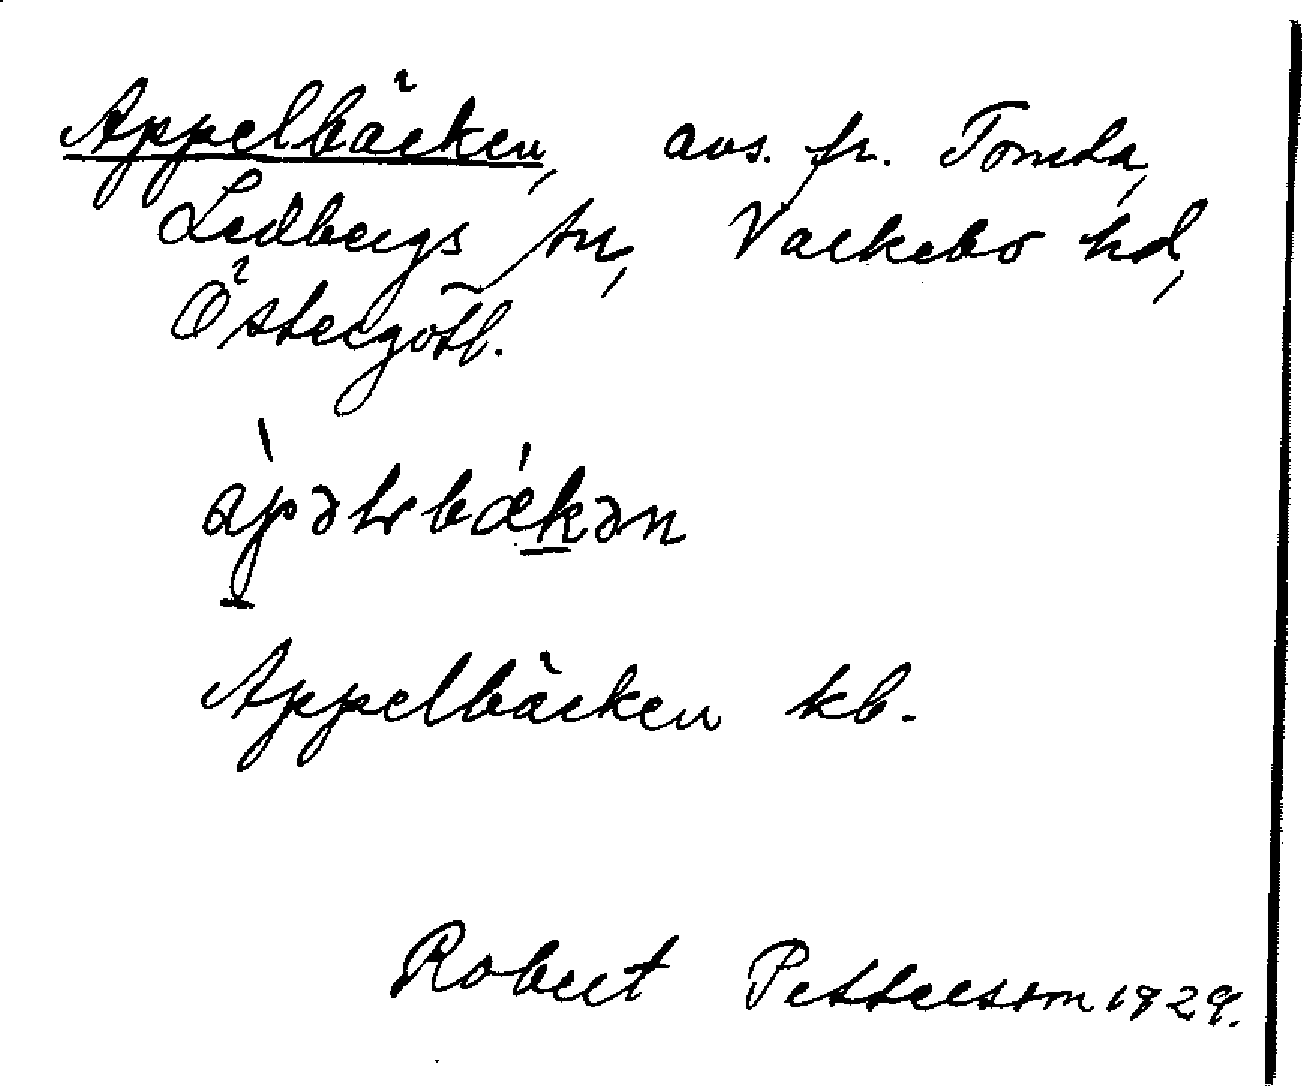 Appelbäcken, avs. fr. Tomta,
Ledbergs sn, Valkebo hd,
Östergötl.
àpəlbǽkən
Appelbäcken kb.
Robert Pettersson 1929.